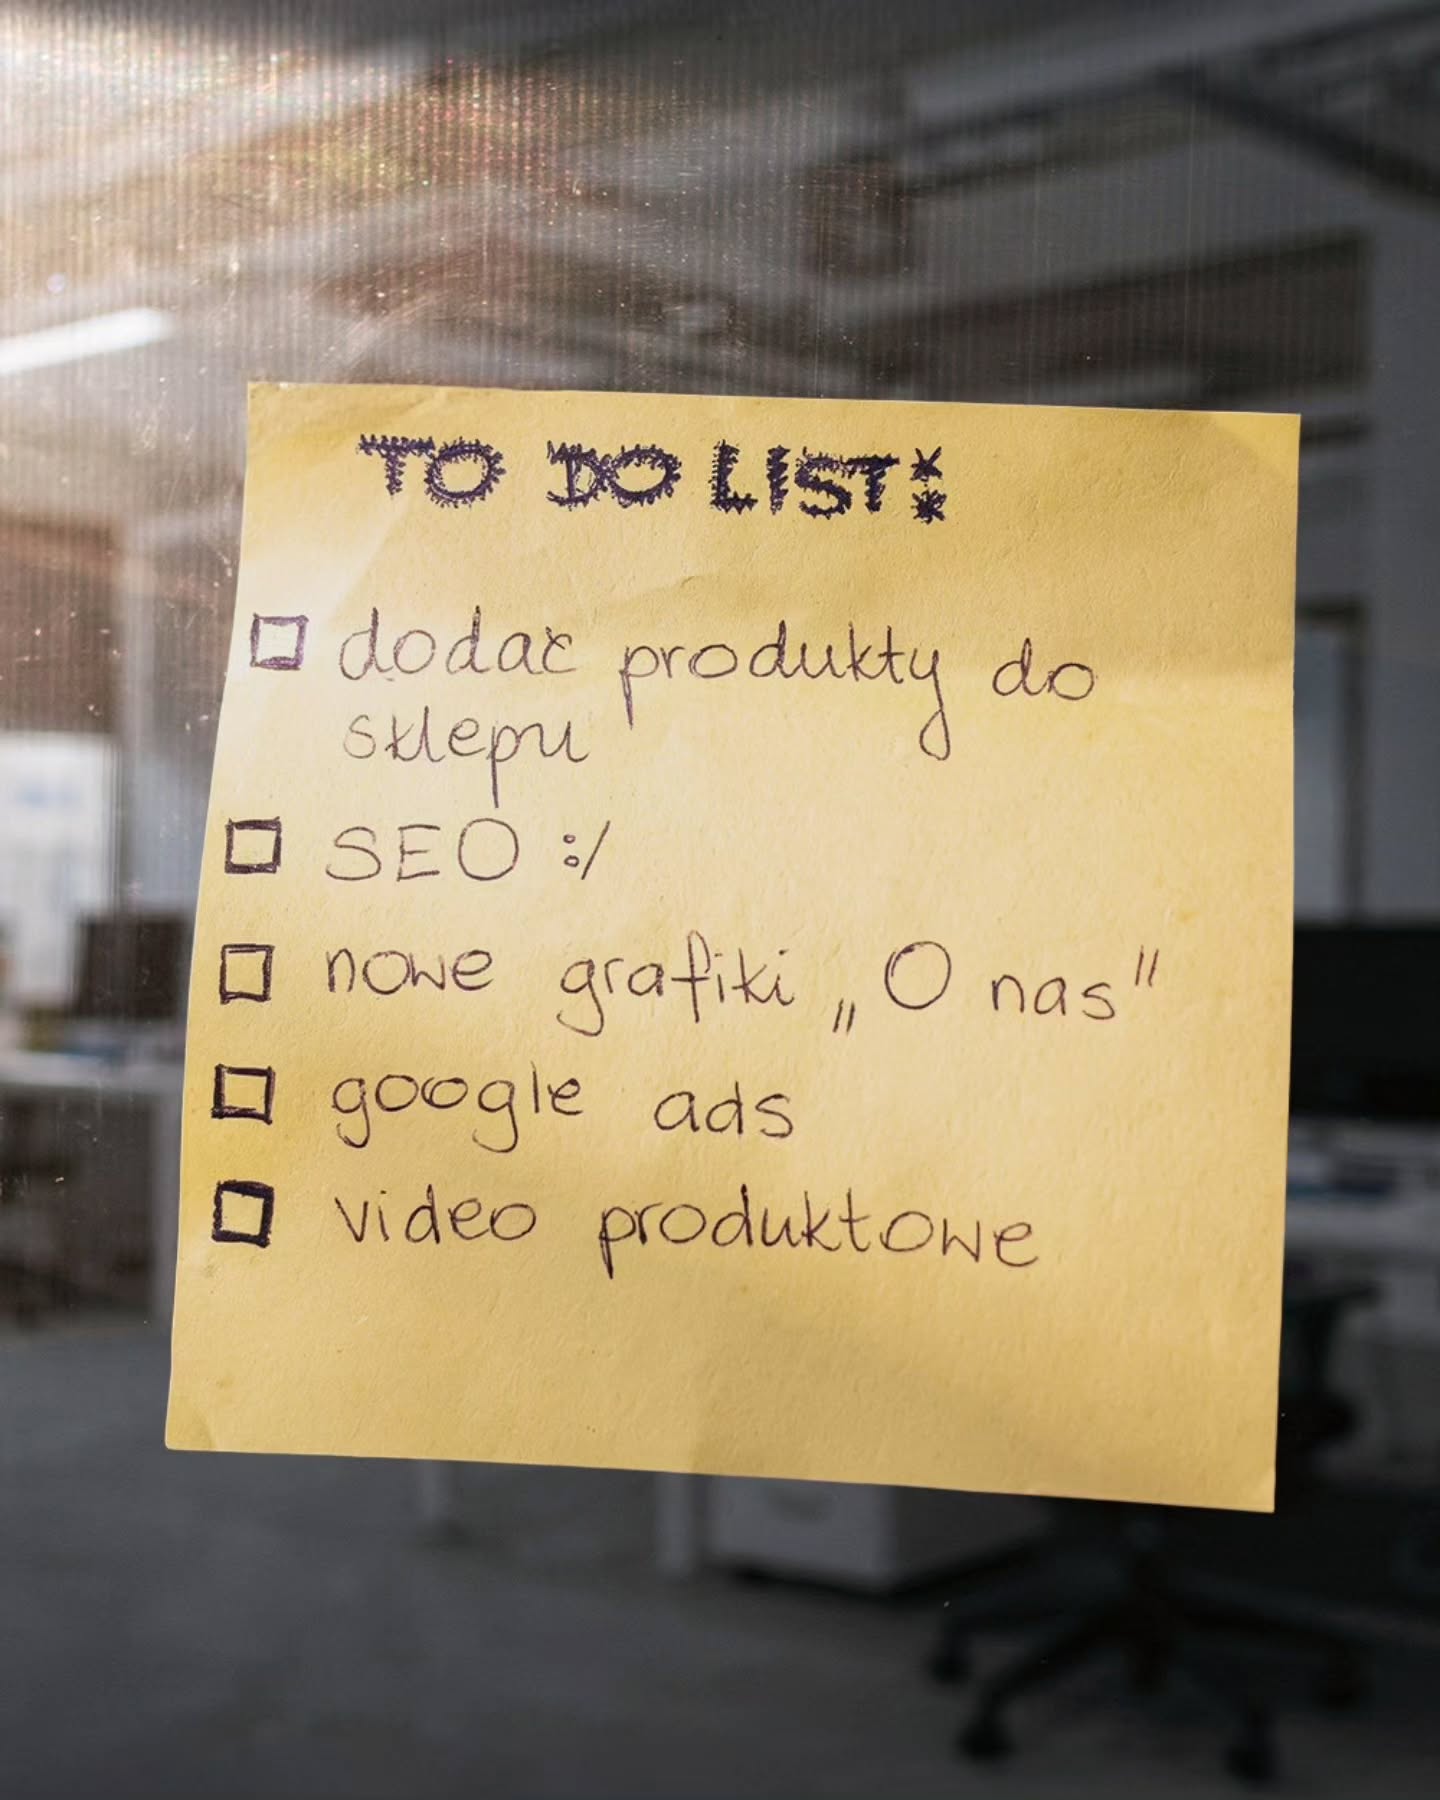 TO DO LIST:
dodać produkty do
sklepu
SEO :/
nowe grafiki „O nas"
google ads
video produktowe